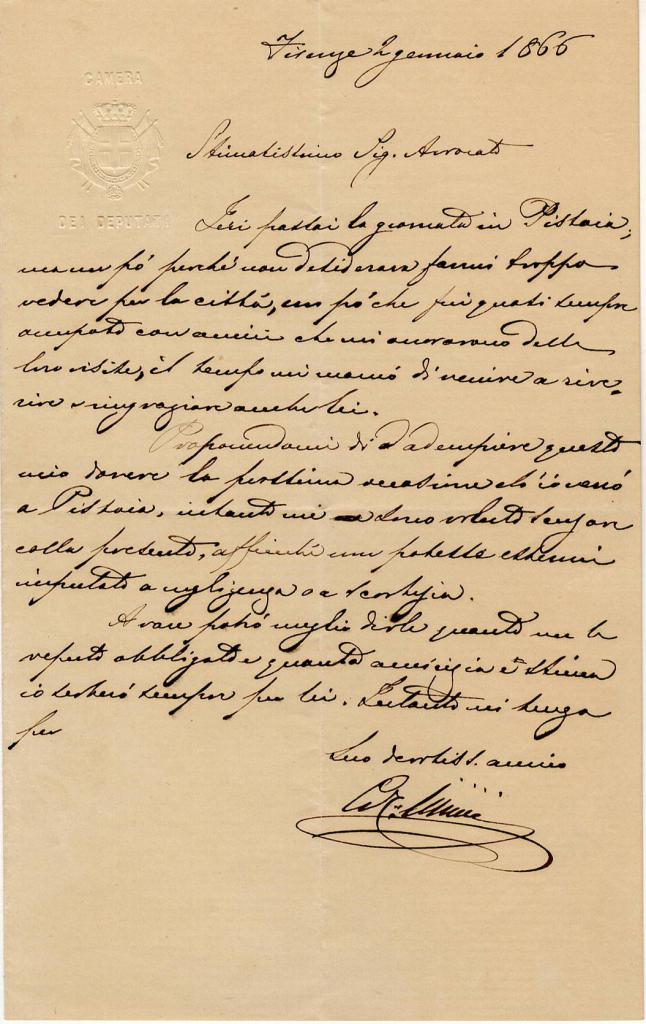 Firenze 2 gennaio 1866
CAMERA
DEI DEPUTATI
Stimatissimo Sig. Avvocato
Ieri passai la giornata in Pistoia;
ma un pó perché non desiderava farmi troppo
vedere per la cittá, un pó che fui quasi sempre
occupato con amici che mi onoravano delle
loro visite, il tempo mi mancó di venire a rive-
rire e ringraziare anche lei.
Proponendomi di adempiere questo
mio dovere la prossima occasione ch'io verró
a Pistoia, intanto mi sono voluto
colla presente, affinché non potesse essermi
imputato a negligenza o a scortesia.
A voce potró meglio dirle quanto me le
reputo obbligato e quanta amicizia e stima
io serberó sempre per lei. Intanto mi tenga
per
Suo devotiss. amico